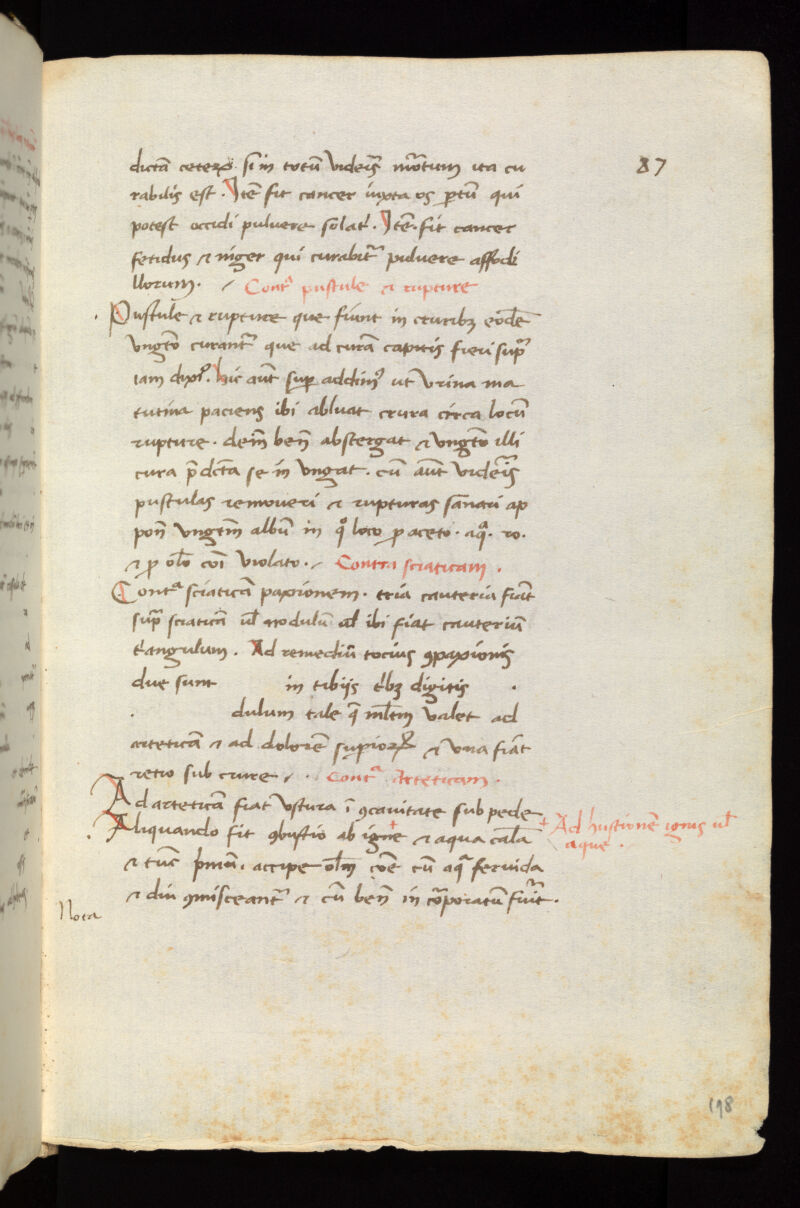 87
dictā ceteros si in totū videris mortuum ita cu
rabilis est. Itē fit cancer iuxta os partū qui
potest occidi pulvere solat. Itē. fit cancer
fetidus et niger qui curabitr pulvere affodi
llorum. Contra pustule et rupture
Pustule et rupture que fiunt in cruribz eodē
ungto curantr que ad curā capitis fieri supra
iam dixi. hic aūt sup addim9 ut urina ma
tutina paciens ibi abluat crura circa locū
rupture. dem̄ ben̄ abstergat et ungto illi
cura p̄dcta se in ungat. cū aūt videris
pustulas removeri et rupturas sanari ap
pon̄ ungtm albū in quo loco p aceto. aq̄. ro.
et p oleo coi violato. Contra sciaticam.
Contra sciaticā paxionem. tria cauteria fiant
supra sciaticā vl nodulū al ibi fiat cauteriū
triangulum. Ad remediū tocius 9paxionis
due sunt in tibijs tribz digitis .
. dulum tale q̄ mltm valet ad
arteticā et ad dolorē superiorum et una fiat
retro sub crure. Contra Arteticam.
Ad arteticā fiat ustura ī 9cavitate sub pede
Aliquando fit 9bustio ab igne et aqua calā
+ Ad bustionē ignis vl
aque.
et tūc p̄mū. accipe olm coē cū aq̄ fervida
et diu 9misceantr et cū ben̄ in corporatum fuerit.
Nota
198